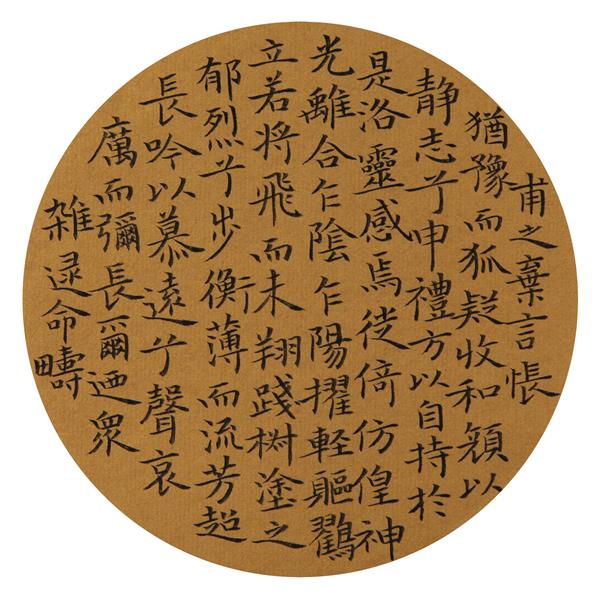 甫之棄言悵
猶豫而狐疑收和顔以
静志兮申禮方以自持於
是洛靈感焉徙倚仿偟神
光離合乍陰乍陽擢軽軀鸛
立若将飛而未翔踐椒塗之
郁烈兮步衡薄而流芳超
長吟以慕遠兮聲哀
厲而彌長爾迺衆
雑遝命疇